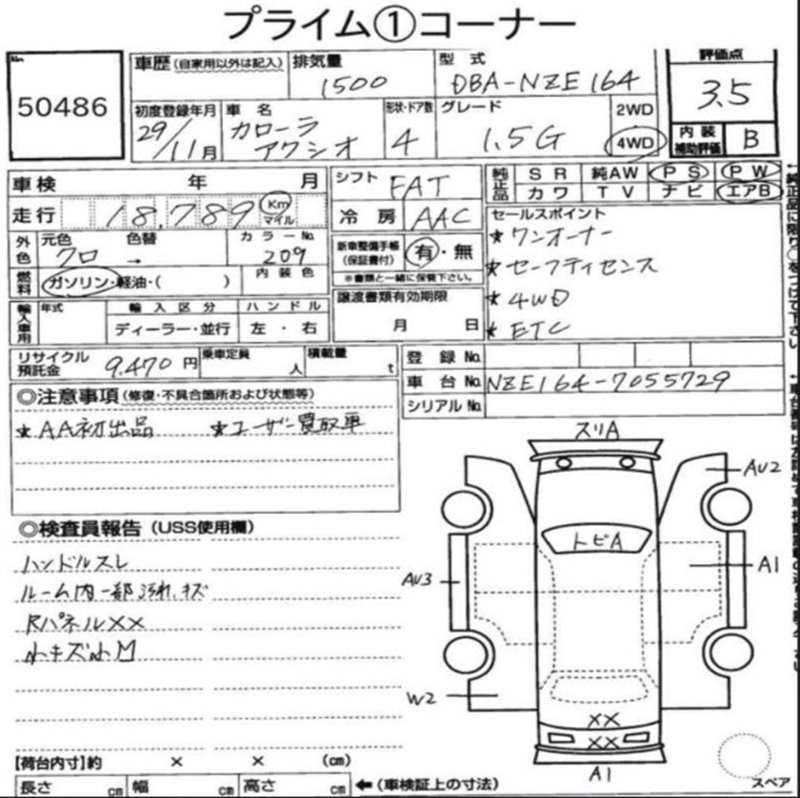 プライム①コーナー
No.
50486
車歴 (自家用以外は記入)
排気量
1500
型式
DBA-NZE164
評価点
3.5
初度登録年月
29/11月
車名
カローラ
アクシオ
形状・ドア数
4
グレード
1.5G
2WD
4WD
内装
補助評価
B
車検 年 月
シフト
FAT
純正品
SR 純AW PS PW
カワ TV ナビ エアB
走行 18,789 Km マイル
冷房 AAC
セールスポイント
★ワンオーナー
★セーフティセンス
★4WD
★ETC
外色
元色 色替 カラーNo.
クロ → 209
新車整備手帳
(保証書付)
有・無
※書類と一緒に保管下さい。
燃料
ガソリン・軽油・( )
内装色
譲渡書類有効期限
月 日
輸入車用
年式
輸入区分 ハンドル
ディーラー・並行 左・右
リサイクル
預託金
9,470円
乗車定員 人
積載量 t
登録No.
車台No. NZE164-7055729
シリアルNo.
◎注意事項 (修復・不具合箇所および状態等)
★AA初出品 ★ユーザー買取車
◎検査員報告 (USS使用欄)
ハンドルスレ
ルーム内一部汚れ、キズ
Rパネル××
小キズ小凹
スリA
AU2
トビA
A1
AU3
W2
××
××
A1
スペア
【荷台内寸】約 × × (cm)
長さ cm 幅 cm 高さ cm ←(車検証上の寸法)